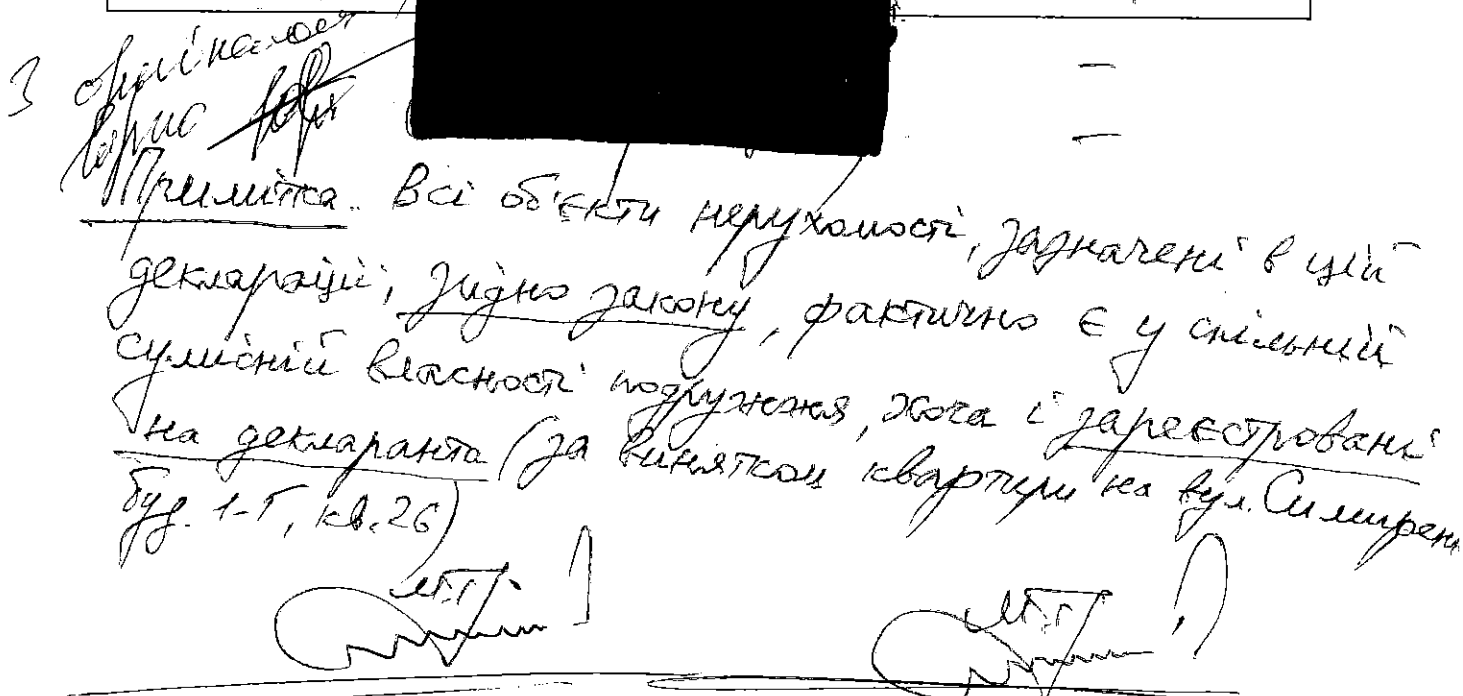 З оригіналом
вірно
Примітка. Всі об'єкти нерухомості, зазначені в цій
декларації, згідно закону, фактично є у спільній
сумісній власності подружжя, хоча і зареєстровані
на декларанта (за винятком квартири на вул. Симирен
буд. 1-Г, кв. 26)